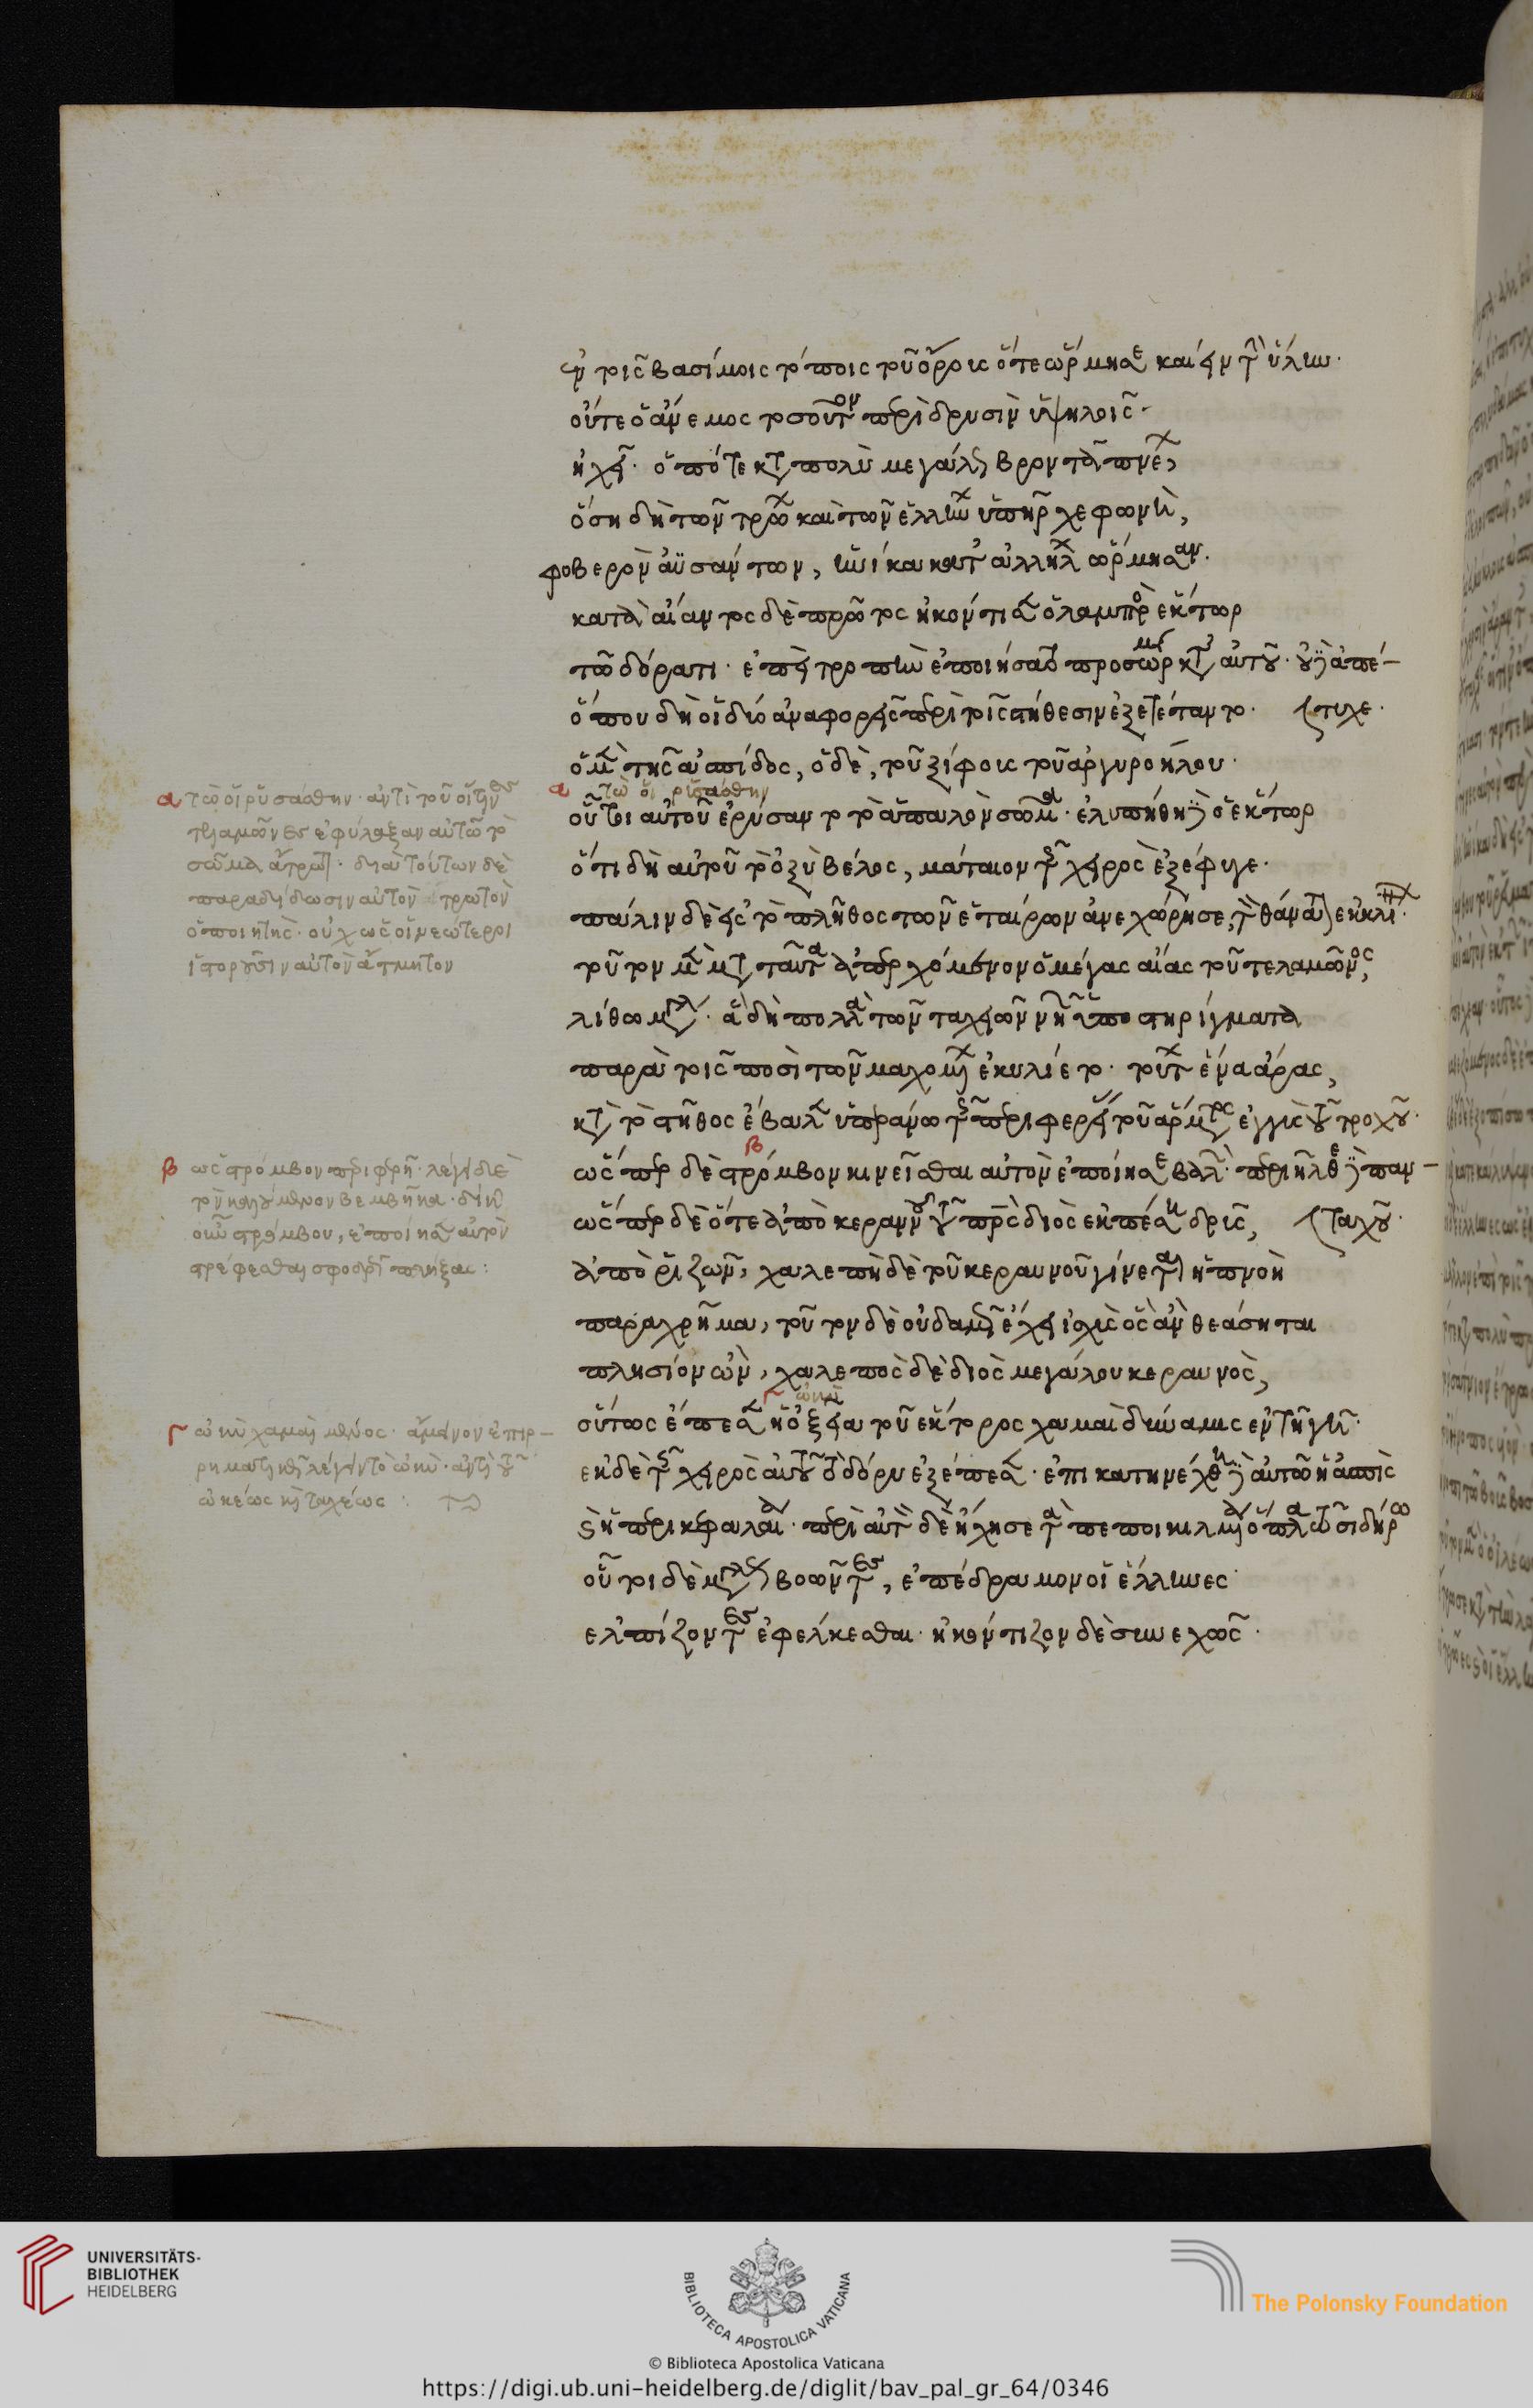 ἐν τοῖς βασίμοις τόποις τοῦ ὄρους ὅτε ὥρμησε καίειν τὴν ὕλην·
οὔτε ὁ ἄνεμος τοσοῦτον περὶ δρυσὶν ὑψηλοῖς·
ἠχεῖ· ὁπότε κατὰ πολὺ μεγάλως βροντᾶ πνέων,
ὅση δὴ τῶν τρώων καὶ τῶν ἑλλήνων ὑπῆρχε φωνὴ,
φοβερὸν ἀϋσάντων, ἡνίκα κατ' ἀλλήλων ὥρμησαν.
κατὰ αἴαντος δὲ πρῶτος ἠκόντισεν ὁ λαμπρὸς ἕκτωρ
τῶ δόρατι· ἐπεὶ τροπὴν ἐποιήσατο κατ' αὐτοῦ· οὐδὲ ἀπέ-
ὅπου δὴ οἱ δύο ἀναφορεῖς περὶ τοῖς στήθεσιν ἐξετέταντο· τυχε·
ὁ μὲν τῆς ἀσπίδος, ὁ δὲ, τοῦ ξίφους τοῦ ἀργυροήλου·
α τώ οἱ ῥυσάσθην
οὗτοι αὐτοῦ ἐρύσαντο τὸ ἁπαλὸν σῶμα· ἐλυπήθη δὲ ὁ ἕκτωρ
ὅτι δὴ αὐτοῦ τὸ ὀξὺ βέλος, μάταιον τῆς χειρὸς ἐξέφυγε·
πάλιν δὲ εἰς τὸ πλῆθος τῶν ἑταίρων ἀνεχώρησε, τὸν θάνατον ἐκκλίνων·
τοῦτον μὲν μετὰ ταῦτα ἀπερχόμενον ὁ μέγας αἴας τοῦ τελαμῶνος,
λίθω μεγάλω· ἃ δὴ πολλὰ τῶν ταχειῶν νηῶν ὑποστηρίγματα
παρὰ τοῖς ποσὶ τῶν μαχομένων ἐκυλίετο· τούτων ἕνα ἄρας,
κατὰ τὸ στῆθος ἔβαλεν ὑπεράνω τῆς περιφερείας τοῦ ἅρματος ἐγγὺς τοῦ τροχοῦ·
β
ὥσπερ δὲ στρόμβον κινεῖσθαι αὐτὸν ἐποίησε βαλών· περιῆλθε δὲ παν-
ὥσπερ δὲ ὅτε ἀπὸ κεραυνοῦ τοῦ πατρὸς διὸς ἐκπέση δρῦς, ταχοῦ·
ἀπὸ ῥιζῶν, χαλεπὴ δὲ τοῦ κεραυνοῦ γίνεται ἡ πνοὴ
παραχρῆμα, τοῦτον δὲ οὐδαμῶς ἔχει ἰσχὺς ὃς ἂν θεάσηται
πλησίον ὢν, χαλεπὸς δὲ διὸς μεγάλου κεραυνὸς,
γ ὠκὺ
οὕτως ἔπεσεν ἡ ὀξεῖα τοῦ ἕκτορος χαμαὶ δύναμις ἐν τῆ γῆ·
ἐκ δὲ τῆς χειρὸς αὐτοῦ τὸ δόρυ ἐξέπεσεν· ἐπικατηνέχθη δὲ αὐτῶ ἡ ἀσπὶς
καὶ ἡ περικεφαλαία· περὶ αὐτὸν δὲ ἤχησε τὰ πεποικιλμένα ὅπλα τῶ σιδήρω
οὗτοι δὲ μεγάλως βοῶντες, ἐπέδραμον οἱ ἕλληνες·
ἐλπίζοντες ἐφέλκεσθαι· ἠκόντιζον δὲ συνεχῶς·
α τώ οἱ ῥυσάσθην· ἀντὶ τοῦ οἵτινες
τελαμῶνες ἐφύλαξαν αὐτῶ τὸ
σῶμα ἄτρωτον· διὰ τούτων δὲ
παραδίδωσιν αὐτὸν τρωτὸν
ὁ ποιητὴς· οὐχ ὡς οἱ νεώτεροι
ἱστοροῦσιν αὐτὸν ἄτμητον
β ὡς στρόμβον περιφερῆ· λέγει δὲ
τὸν καλούμενον βέμβηκα· δίκην
οὖν στρόμβου, ἐποίησεν αὐτὸν
στρέφεσθαι σφοδρῶς πλήξας:
γ ὠκὺ χαμαὶ μένος· ἄμεινον ἐπιρ-
ρηματικῶς λέγειν τὸ ὠκὺ· ἀντὶ τοῦ
ὠκέως καὶ ταχέως:
UNIVERSITÄTS-
BIBLIOTHEK
HEIDELBERG
BIBLIOTECA APOSTOLICA VATICANA
© Biblioteca Apostolica Vaticana
The Polonsky Foundation
https://digi.ub.uni-heidelberg.de/diglit/bav_pal_gr_64/0346